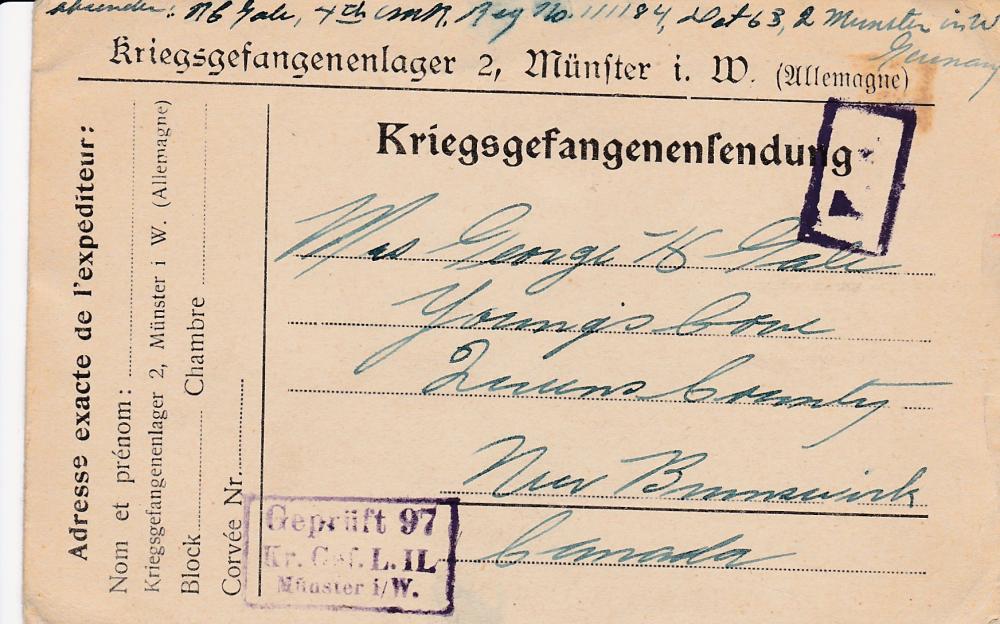 absender: RB Gale, 4th CMR, Reg No. 111184, Dot 63, 2 Munster in W
Germany
Kriegsgefangenenlager 2, Münſter i. W. (Allemagne)
Kriegsgefangenenſendung
Mrs George H Gale
Youngs Cove
Queens County
New Brunswick
Canada
Adresse exacte de l'expéditeur:
Nom et prénom:
Kriegsgefangenenlager 2, Münster i W. (Allemagne)
Block Chambre
Corvée Nr.
Geprüft 97
Kr. Gef. L. II.
Münster i/W.